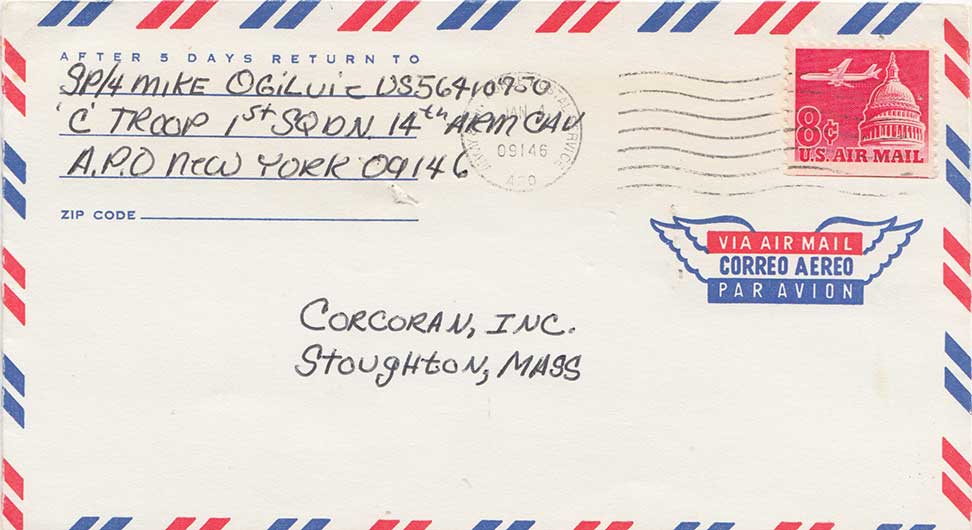 AFTER 5 DAYS RETURN TO
SP/4 MIKE OGILVIE US56410950
'C' TROOP 1st SQDN 14th ARM CAV
A.P.O NEW YORK 09146
ZIP CODE
JAN 4
09146
SERVICE
8¢
U.S. AIR MAIL
VIA AIR MAIL
CORREO AEREO
PAR AVION
CORCORAN, INC.
STOUGHTON, MASS